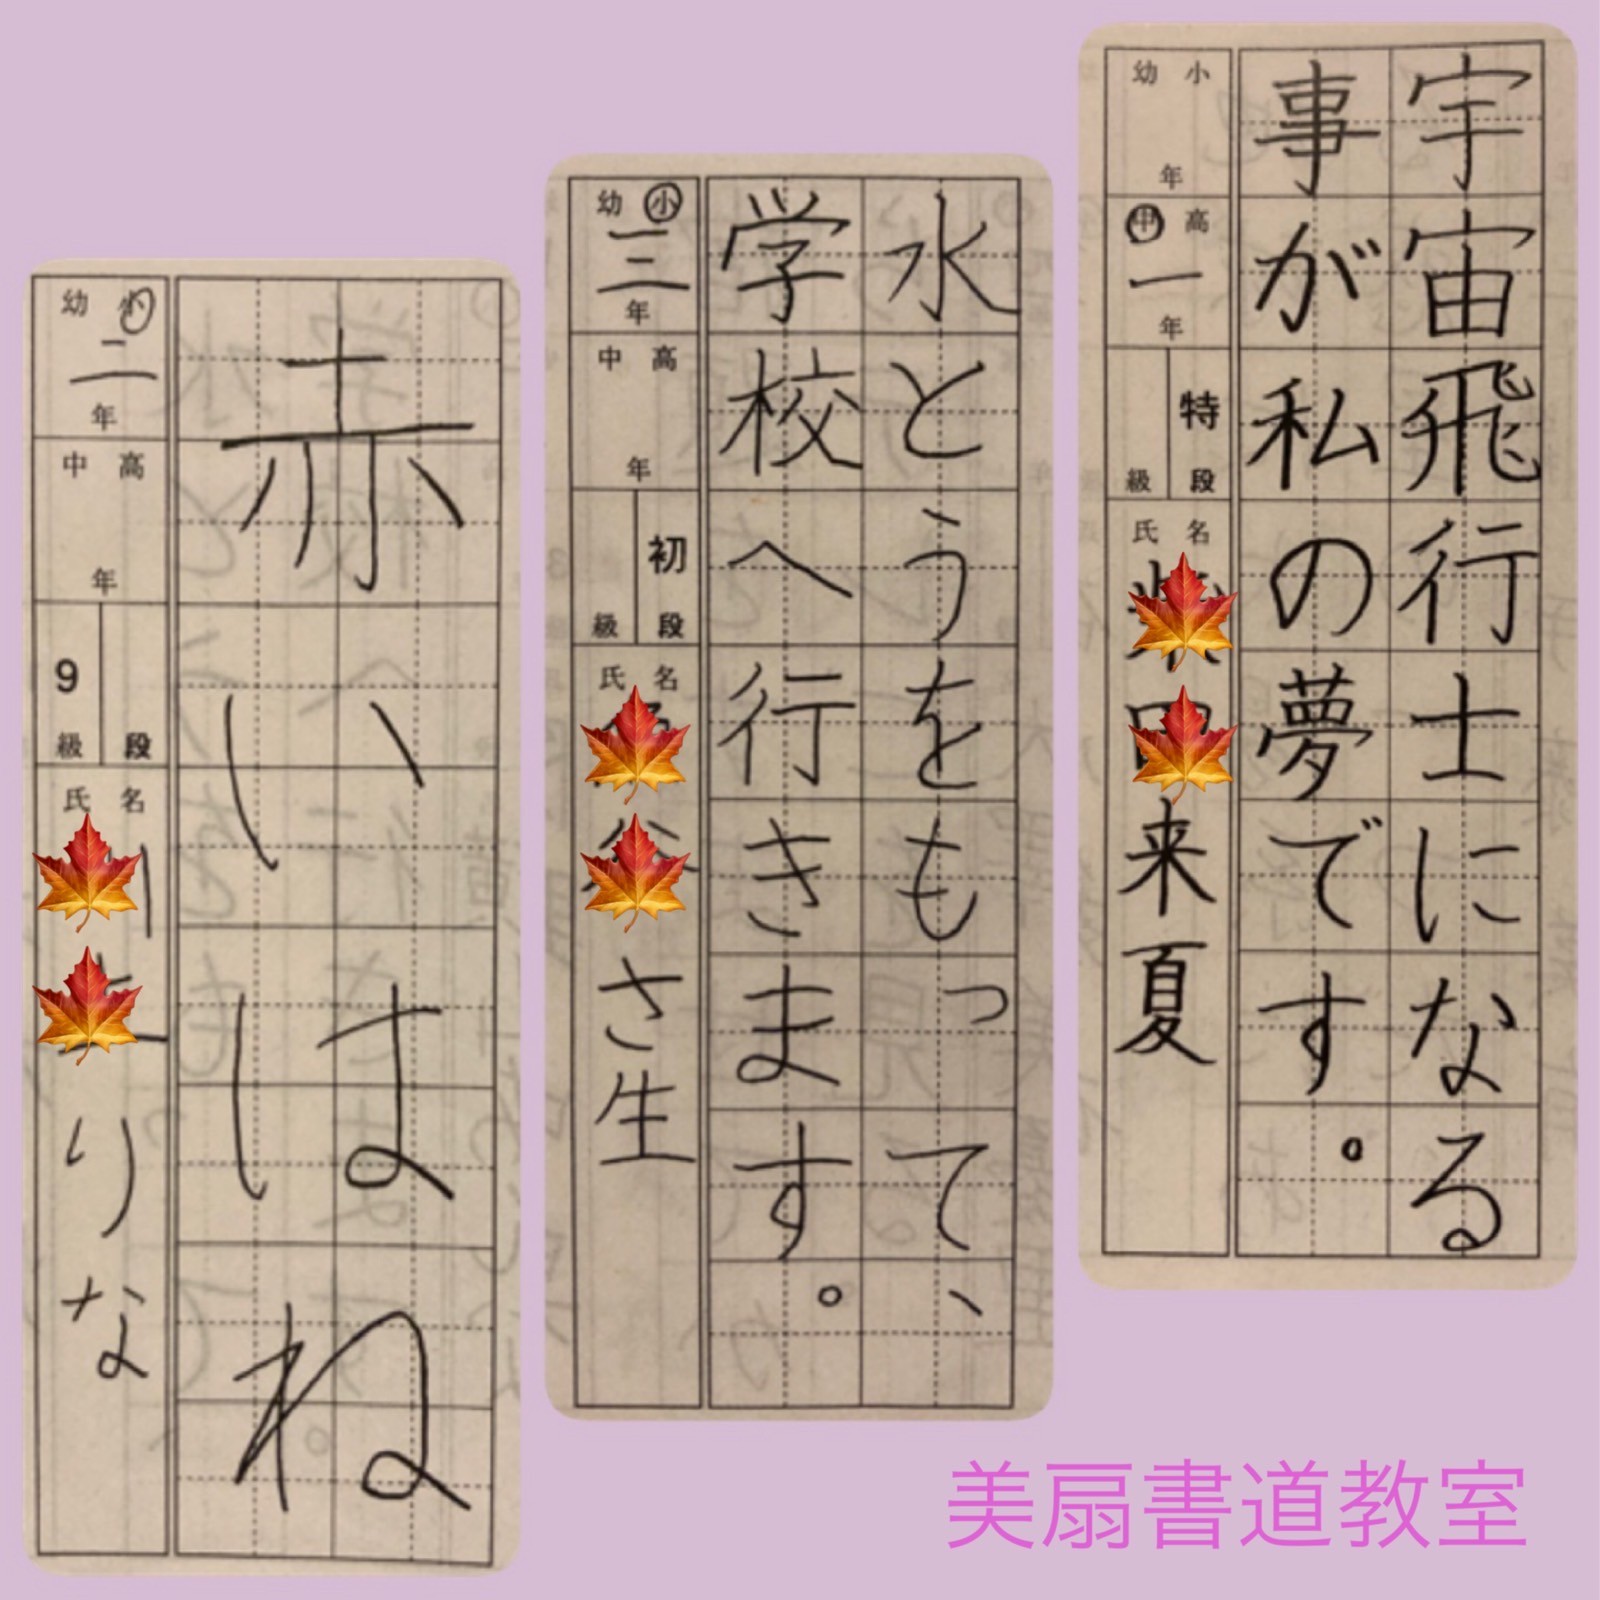 宇宙飛行士になる
事が私の夢です。
幼 小
年
中 高
一年
特段
級
氏名
来夏
水とうをもって、
学校へ行きます。
幼 小
三年
中 高
年
初段
級
氏名
さ生
赤いはね
幼 小
二年
中 高
年
段
9級
氏名
りな
美扇書道教室